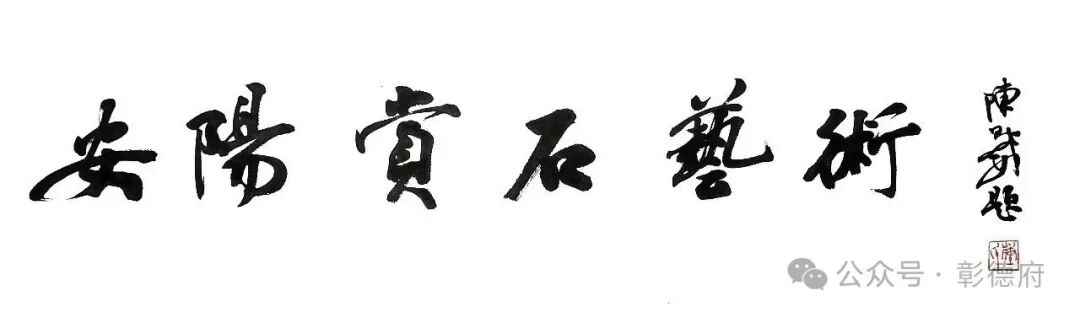 安陽賞石藝術
陳 題
公众号 · 彰德府